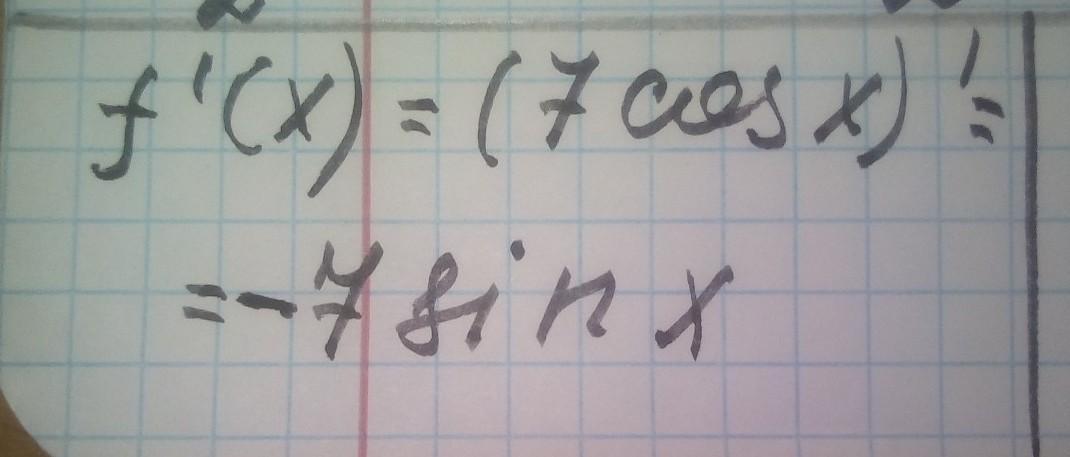 f'(x) = (7 cos x)' =
= -7 sin x